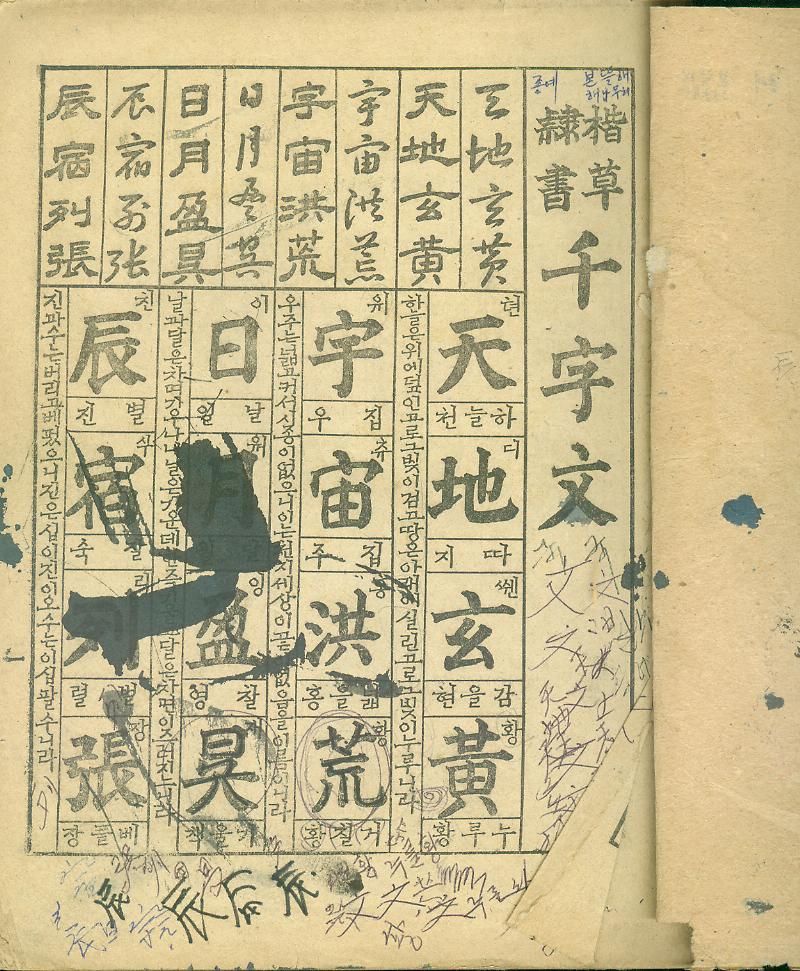 楷草
隷書
千字文
天地玄黃
天地玄黃
宇宙洪荒
宇宙洪荒
日月盈昃
日月盈昃
辰宿列張
辰宿列張
현
天
하늘천
디
地
따지
쎈
玄
감을현
황
黃
누루황
하늘은위에덮인고로그빛이검고땅은아래에실린고로그빛이누루니라
위
宇
집우
쥬
宙
집주
홍
洪
넓을홍
황
荒
거칠황
우주는넓고커서시종이없으니이는천지세상이끝이없음을이름이니라
이
日
날일
위
月
달
잉
盈
찰영
昃
기울책
날과달은차며기우나니날은가운데 달은차면이즈러지느니라
진
辰
별진
식
宿
잘숙
리
列
벌렬
장
張
베풀장
진과수는버리고베펐으니진은십이진이오수는이십팔수니라